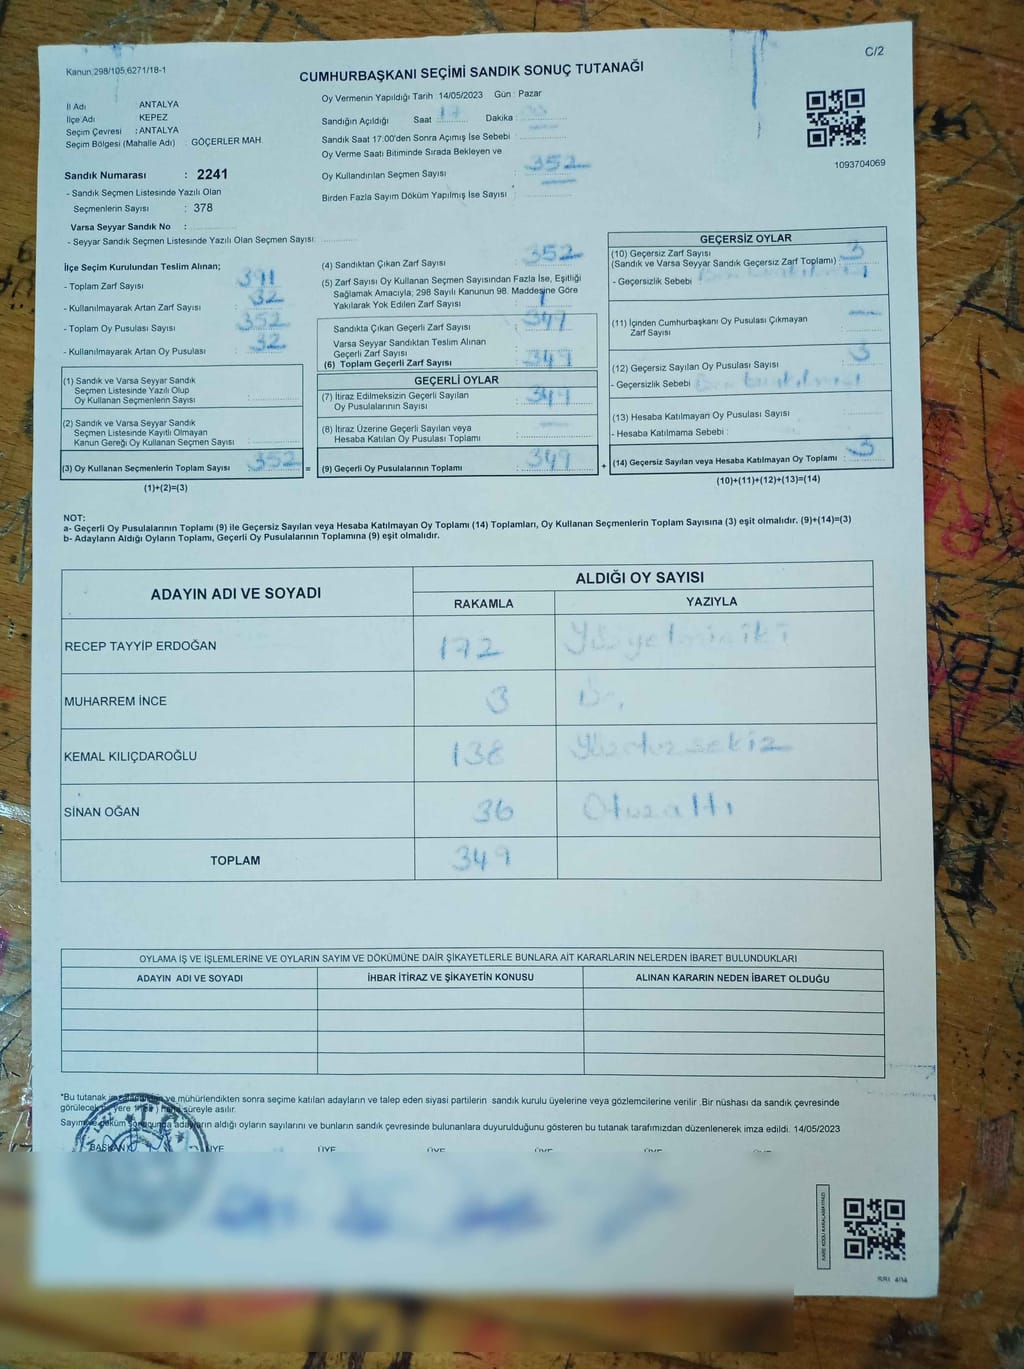 Kanun 298/105,6271/18-1
C/2
CUMHURBAŞKANI SEÇİMİ SANDIK SONUÇ TUTANAĞI
İl Adı : ANTALYA
İlçe Adı : KEPEZ
Seçim Çevresi : ANTALYA
Seçim Bölgesi (Mahalle Adı) : GÖÇERLER MAH.
Oy Vermenin Yapıldığı Tarih : 14/05/2023 Gün : Pazar
Sandığın Açıldığı Saat 17 Dakika :
Sandık Saat 17:00'den Sonra Açımış İse Sebebi :
Oy Verme Saati Bitiminde Sırada Bekleyen ve
Oy Kullandırılan Seçmen Sayısı : 352
Birden Fazla Sayım Döküm Yapılmış İse Sayısı :
1093704069
Sandık Numarası : 2241
- Sandık Seçmen Listesinde Yazılı Olan
Seçmenlerin Sayısı : 378
Varsa Seyyar Sandık No :
- Seyyar Sandık Seçmen Listesinde Yazılı Olan Seçmen Sayısı:
İlçe Seçim Kurulundan Teslim Alınan;
- Toplam Zarf Sayısı : 391
- Kullanılmayarak Artan Zarf Sayısı : 32
- Toplam Oy Pusulası Sayısı : 352
- Kullanılmayarak Artan Oy Pusulası : 32
(1) Sandık ve Varsa Seyyar Sandık
Seçmen Listesinde Yazılı Olup
Oy Kullanan Seçmenlerin Sayısı :
(2) Sandık ve Varsa Seyyar Sandık
Seçmen Listesinde Kayıtlı Olmayan
Kanun Gereği Oy Kullanan Seçmen Sayısı :
(3) Oy Kullanan Seçmenlerin Toplam Sayısı : 352 =
(1)+(2)=(3)
(4) Sandıktan Çıkan Zarf Sayısı : 352
(5) Zarf Sayısı Oy Kullanan Seçmen Sayısından Fazla İse, Eşitliği
Sağlamak Amacıyla, 298 Sayılı Kanunun 98. Maddesine Göre
Yakılarak Yok Edilen Zarf Sayısı :
Sandıkta Çıkan Geçerli Zarf Sayısı : 349
Varsa Seyyar Sandıktan Teslim Alınan
Geçerli Zarf Sayısı :
(6) Toplam Geçerli Zarf Sayısı : 349
GEÇERLİ OYLAR
(7) İtiraz Edilmeksizin Geçerli Sayılan
Oy Pusulalarının Sayısı : 349
(8) İtiraz Üzerine Geçerli Sayılan veya
Hesaba Katılan Oy Pusulası Toplamı :
(9) Geçerli Oy Pusulalarının Toplamı : 349 +
GEÇERSİZ OYLAR
(10) Geçersiz Zarf Sayısı
(Sandık ve Varsa Seyyar Sandık Geçersiz Zarf Toplamı) : 3
- Geçersizlik Sebebi
(11) İçinden Cumhurbaşkanı Oy Pusulası Çıkmayan
Zarf Sayısı :
(12) Geçersiz Sayılan Oy Pusulası Sayısı : 3
- Geçersizlik Sebebi :
(13) Hesaba Katılmayan Oy Pusulası Sayısı :
- Hesaba Katılmama Sebebi :
(14) Geçersiz Sayılan veya Hesaba Katılmayan Oy Toplamı : 3
(10)+(11)+(12)+(13)=(14)
NOT:
a- Geçerli Oy Pusulalarının Toplamı (9) ile Geçersiz Sayılan veya Hesaba Katılmayan Oy Toplamı (14) Toplamları, Oy Kullanan Seçmenlerin Toplam Sayısına (3) eşit olmalıdır. (9)+(14)=(3)
b- Adayların Aldığı Oyların Toplamı, Geçerli Oy Pusulalarının Toplamına (9) eşit olmalıdır.
ADAYIN ADI VE SOYADI
ALDIĞI OY SAYISI
RAKAMLA YAZIYLA
RECEP TAYYİP ERDOĞAN 172 Yüzyetmişiki
MUHARREM İNCE 3
KEMAL KILIÇDAROĞLU 138 Yüzotuzsekiz
SİNAN OĞAN 36 Otuzaltı
TOPLAM 349
OYLAMA İŞ VE İŞLEMLERİNE VE OYLARIN SAYIM VE DÖKÜMÜNE DAİR ŞİKAYETLERLE BUNLARA AİT KARARLARIN NELERDEN İBARET BULUNDUKLARI
ADAYIN ADI VE SOYADI İHBAR İTİRAZ VE ŞİKAYETİN KONUSU ALINAN KARARIN NEDEN İBARET OLDUĞU
*Bu tutanak ve mühürlendikten sonra seçime katılan adayların ve talep eden siyasi partilerin sandık kurulu üyelerine veya gözlemcilerine verilir .Bir nüshası da sandık çevresinde
görülecek yere süreyle asılır.
Sayım ve döküm sonucunda adayların aldığı oyların sayılarını ve bunların sandık çevresinde bulunanlara duyurulduğunu gösteren bu tutanak tarafımızdan düzenlenerek imza edildi. 14/05/2023
BAŞKAN ÜYE ÜYE ÜYE ÜYE ÜYE ÜYE
KARE KODU KARALAMAYINIZ!